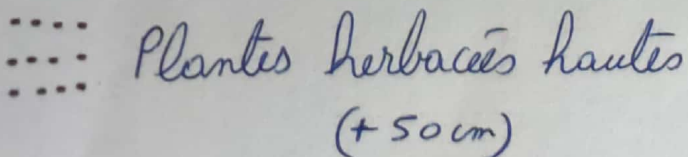 Plantes herbacées hautes
(+ 50 cm)